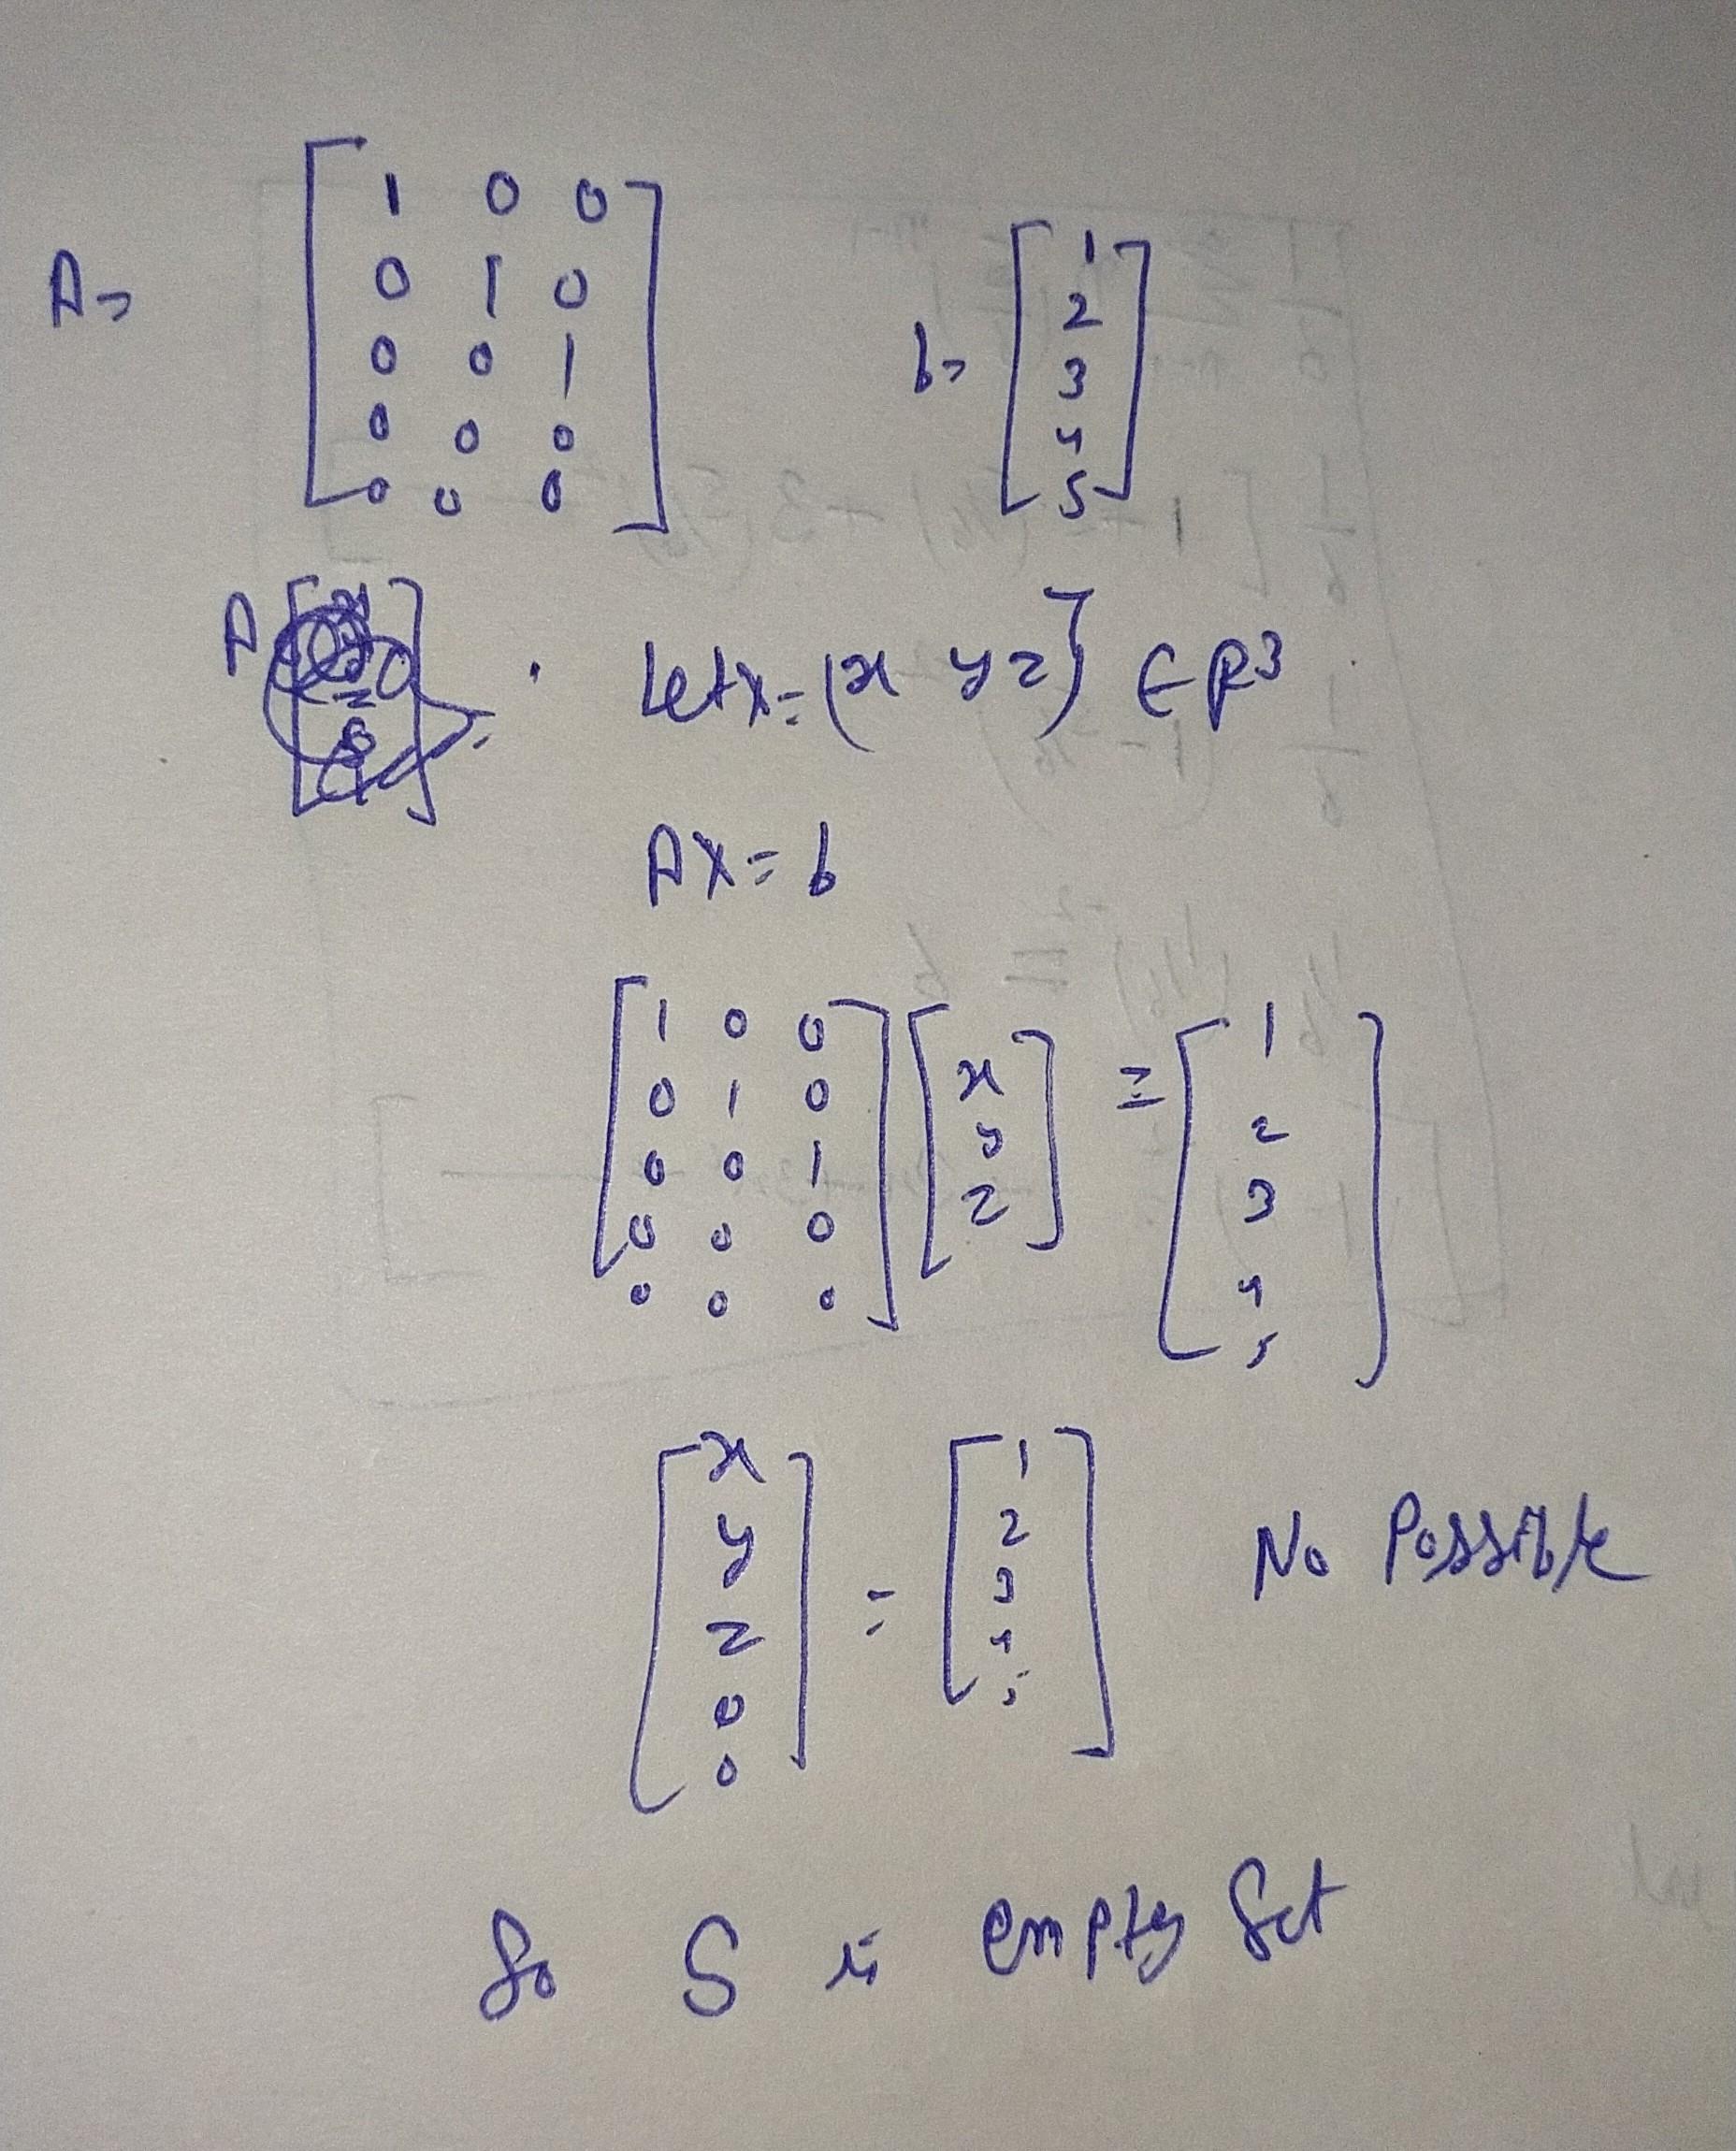 A = [ 1 0 0
0 1 0
0 0 1
0 0 0
0 0 0 ]
b = [ 1
2
3
4
5 ]
A
Let X = (x y z)ᵀ ∈ R³
AX = b
[ 1 0 0
0 1 0
0 0 1
0 0 0
0 0 0 ] [ x
y
z ] = [ 1
2
3
4
5 ]
[ x
y
z
0
0 ] = [ 1
2
3
4
5 ] No Possible
So S is empty Set